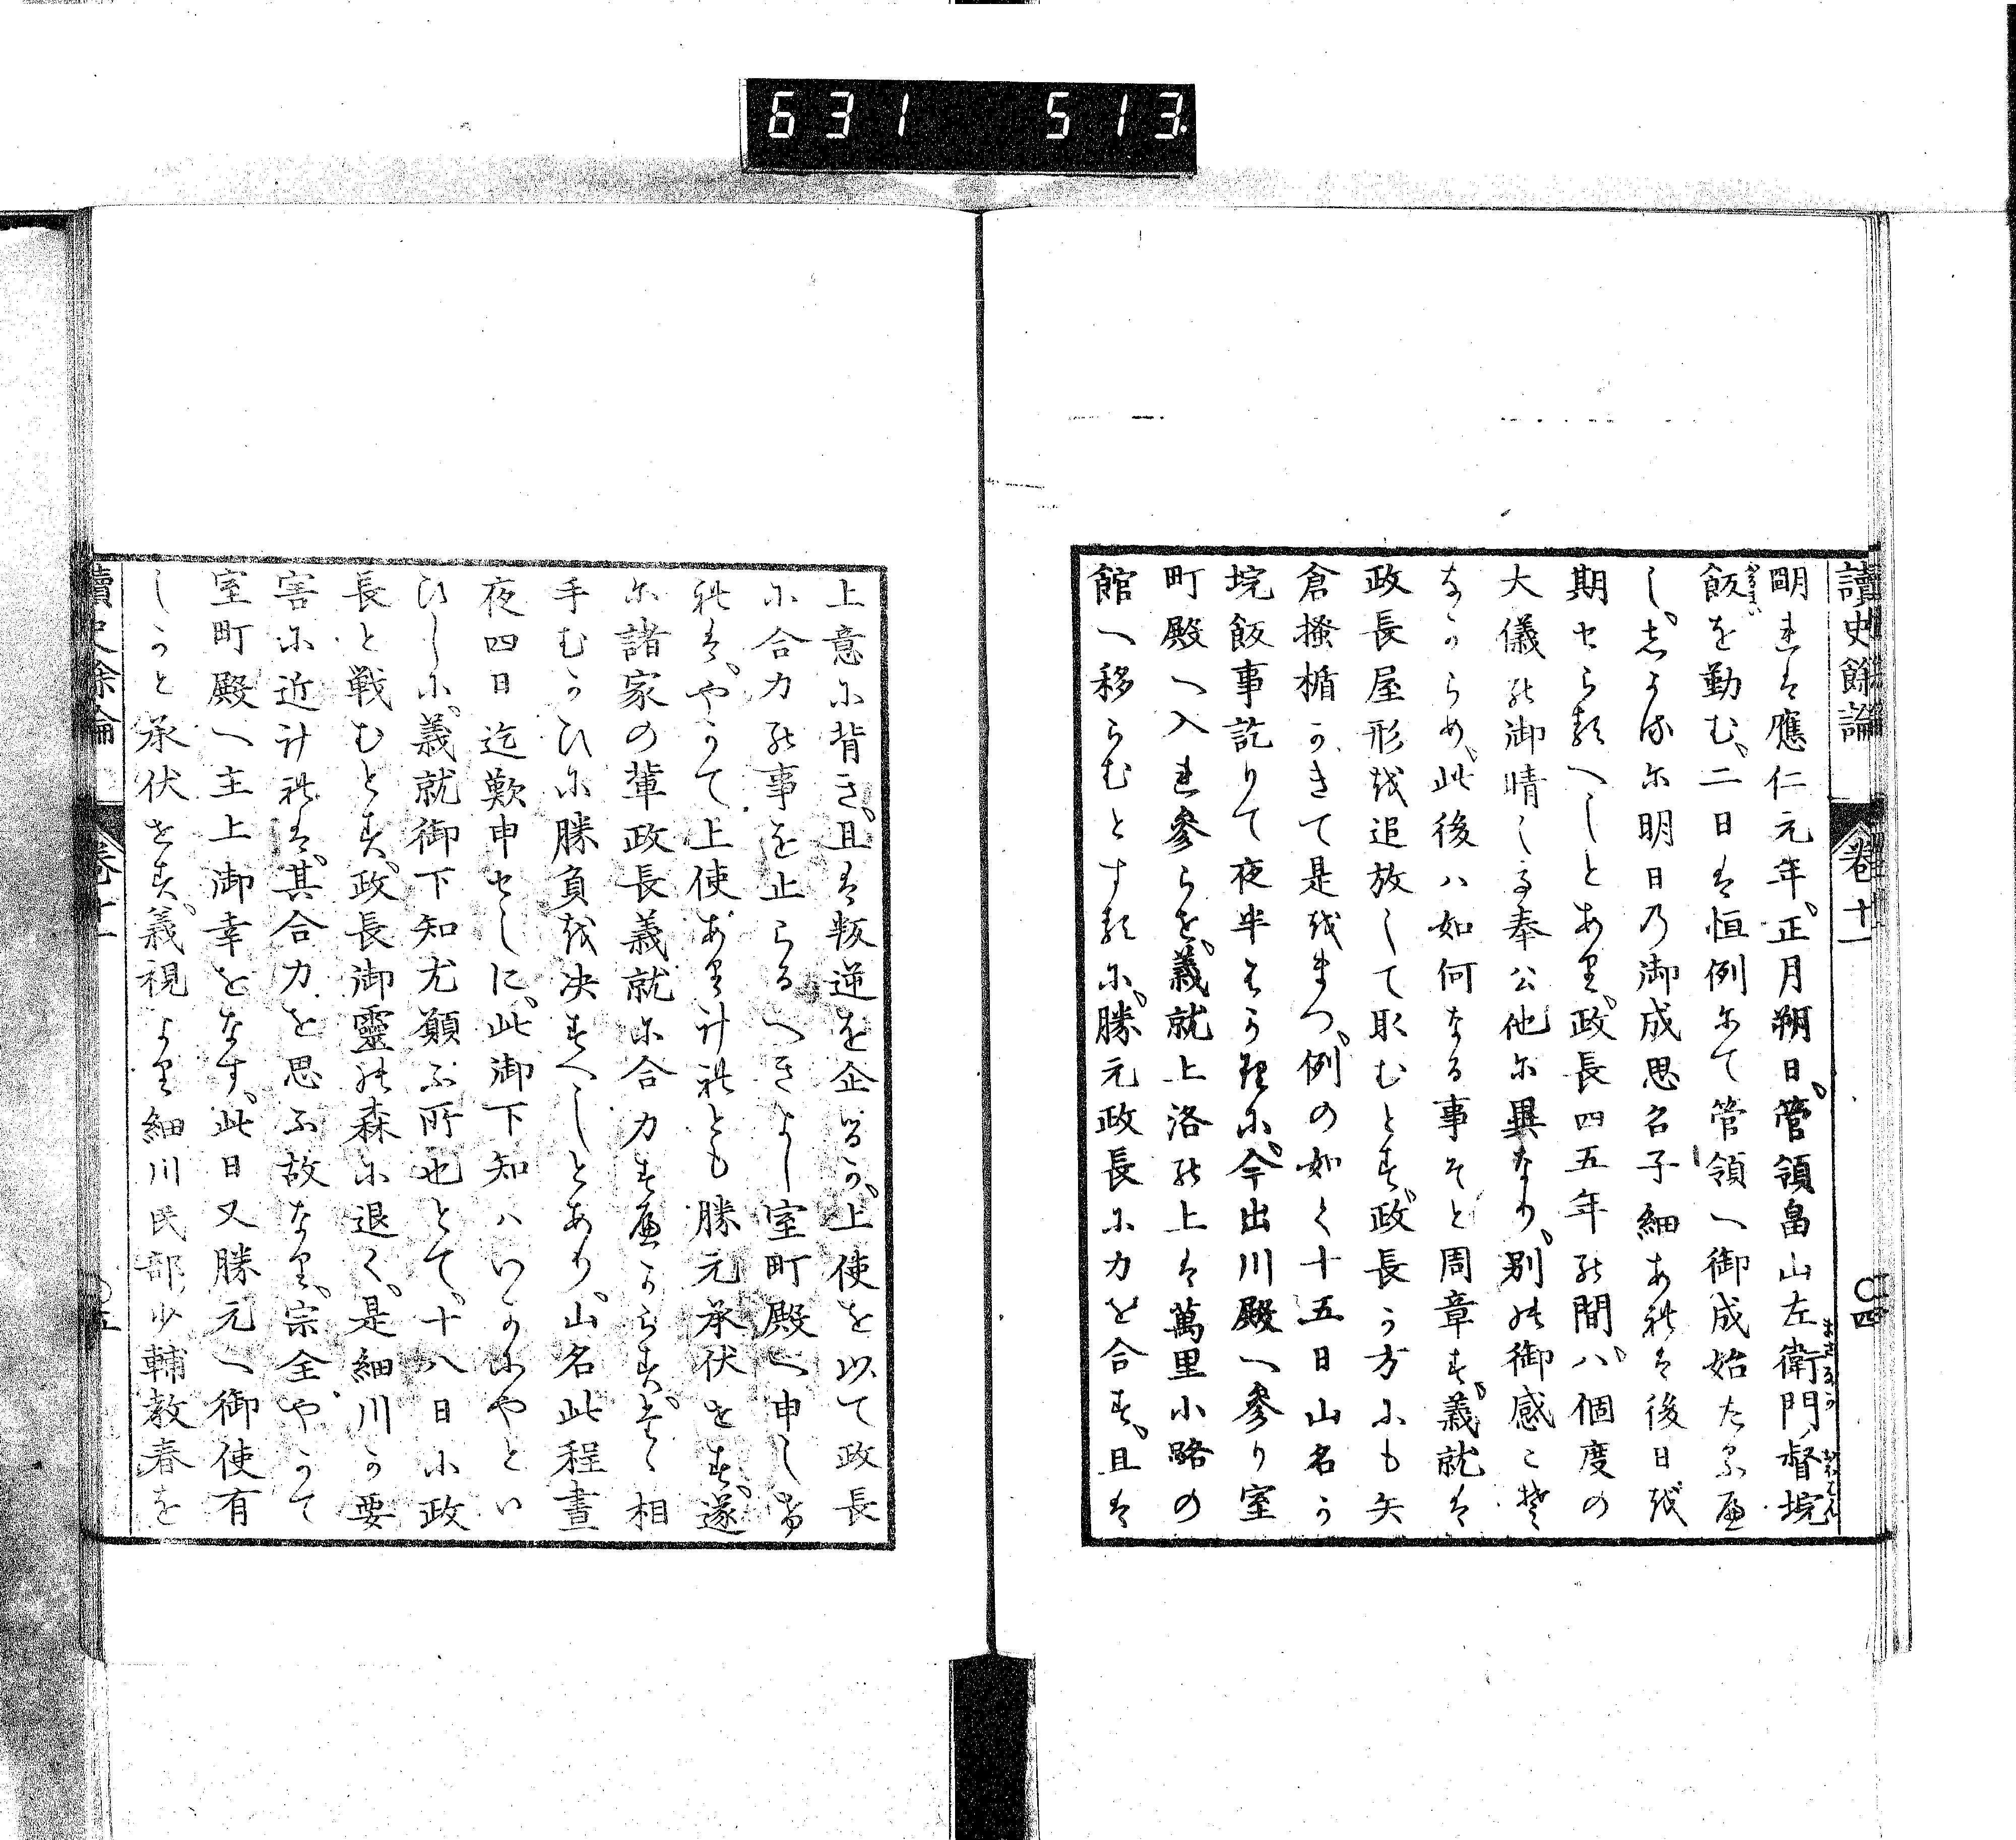 631 513
讀史餘論 卷十一 〇四
明れは應仁元年。正月朔日。管領畠山左衛門督垸
飯を勤む。二日は恒例にて管領へ御成始たるへ
し。しかるに明日の御成思召子細あれは後日を
期せらるへしとあり。政長四五年の間。八個度の
大儀の御晴しき奉公他に異なり。別の御感こそ
なからめ。此後ハ如何なる事そと周章す。義就は
政長屋形を追放して取むとす。政長か方にも矢
倉搔楯かきて是をまつ。例の如く十五日山名か
垸飯事訖りて夜半はかりに。今出川殿へ參り室
町殿へ入れ參らす。義就上洛の上は萬里小路の
館へ移らむとするに。勝元政長に力を合す。且は
上意に背き。且は叛逆を企るか。上使を以て政長
に合力の事を止らるへきよし室町殿へ申しけ
れは。やかて上使ありけれとも勝元承伏せす。遂
に諸家の輩政長義就に合力すへからす。たゝ相
手むかひに勝負を決すへしとあり。山名此程晝
夜四日迄歎申せしに。此御下知ハいかにやとい
ひしに。義就御下知尤願ふ所也とて。十八日に政
長と戰むとす。政長御靈の森に退く。是細川か要
害に近けれは。其合力を思ふ故なり。宗全やかて
室町殿へ主上御幸をなす。此日又勝元へ御使有
しかと承伏せす。義視より細川民部少輔教春を
讀史餘論 卷十一 〇五